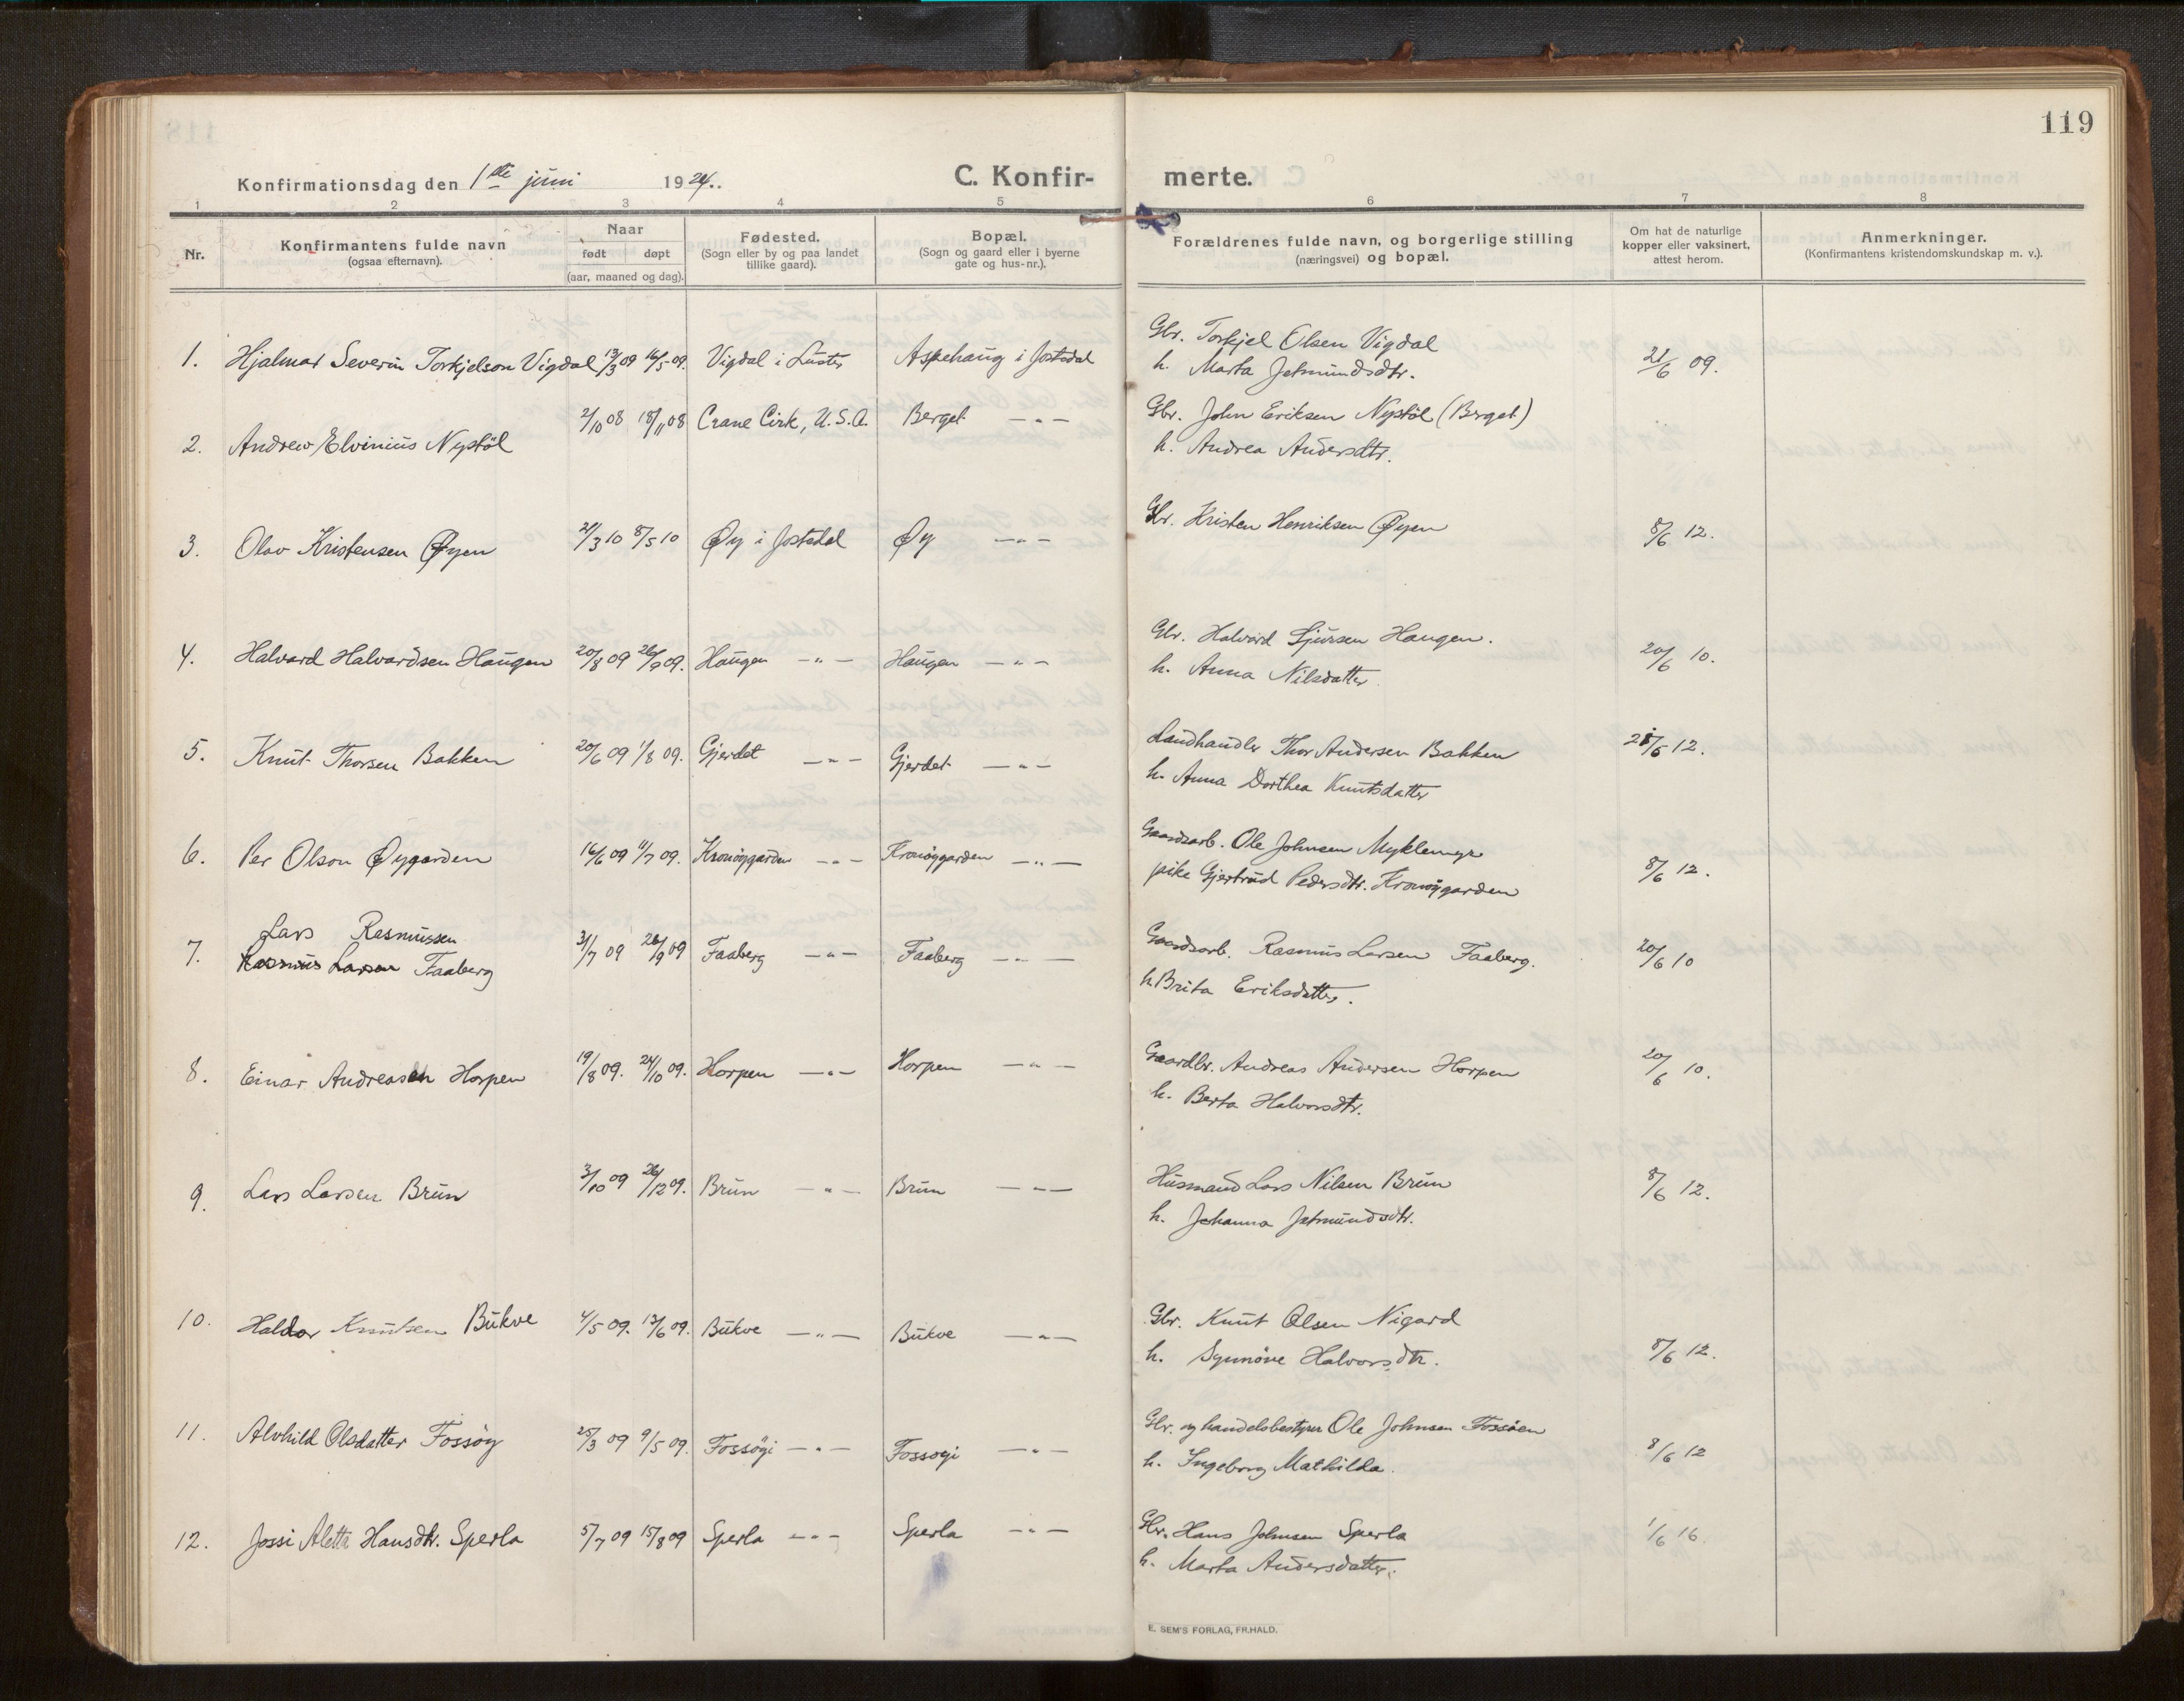 119
Konfirmationsdag den 1ste juni 1924.
C. Konfir-merte.
1 2 3 4 5 6 7 8
Nr.
Konfirmantens fulde navn
(ogsaa efternavn).
Naar
født døpt
(aar, maaned og dag).
Fødested.
(Sogn eller by og paa landet
tillike gaard).
Bopæl.
(Sogn og gaard eller i byerne
gate og hus-nr.).
Forældrenes fulde navn, og borgerlige stilling
(næringsvei) og bopæl.
Om hat de naturlige
kopper eller vaksinert,
attest herom.
Anmerkninger.
(Konfirmantens kristendomskundskap m. v.).
1. Hjalmar Severin Torkjelson Vigdal 13/3 09 16/5 09. Vigdal i Luster Aspehaug i Jostedal
Gbr. Torkjel Olsen Vigdal
h. Marta Jetmundsdtr. 21/6 09.
2. Andrew Elvinius Nystöl 2/10 08 18/11 08 Crane Cirk, U.S.A. Berget — " —
Gbr. John Eriksen Nystöl (Berget)
h. Andrea Andersdtr.
3. Olav Kristensen Øyen 21/3 10 8/5 10 Øy i Jostedal Øy — " —
Gbr. Kristen Henriksen Øyen 8/6 12.
4. Halvard Halvardsen Haugen 20/8 09 26/9 09. Haugen — " — Haugen — " —
Gbr. Halvard Sjursen Haugen.
h. Anna Nilsdatter. 20/6 10.
5. Knut Thorsen Bakken 20/6 09 1/8 09. Gjerdet — " — Gjerdet — " —
Landhandler Thor Andersen Bakken
h. Anna Dorthea Knutsdatter 28/6 12.
6. Per Olson Øygarden 16/6 09 11/7 09. Kronöygarden — " — Kronöygarden — " —
Gaardsarb. Ole Johnsen Myklemyr
pike Gjertrud Pedersdtr. Kronöygarden 8/6 12.
7. Lars Rasmussen
Rasmus Larsen Faaberg 31/7 09 26/9 09 Faaberg — " — Faaberg — " —
Gaardsarb. Rasmus Larsen Faaberg.
h. Brita Eriksdatter. 20/6 10
8. Einar Andreasen Horpen 19/8 09. 24/10 09. Horpen — " — Horpen — " —
Gaardbr. Andreas Andersen Horpen
h. Berta Halvorsdtr. 20/6 10.
9. Lars Larsen Brun 3/10 09 26/12 09. Brun — " — Brun — " —
Husmand Lars Nilsen Brun
h. Johanna Jetmundsdtr. 8/6 12.
10. Haldor Knutsen Bukve 4/5 09. 13/6 09. Bukve — " — Bukve — " —
Gbr. Knut Olsen Nigard
h. Synnöve Halvorsdtr. 8/6 12.
11. Alvhild Olsdatter Fossöy 25/3 09 9/5 09. Fossöyi — " — Fossoyi — " —
Gbr. og handelsbestyrer Ole Johnsen Fossöen
h. Ingeborg Mathilda. 8/6 12
12. Jossi Aletta Hansdtr. Sperla 5/7 09 15/8 09 Sperla — " — Sperla — " —
Gbr. Hans Johnsen Sperla
h. Marta Andersdatter. 1/6 16.
E. SEM'S FORLAG, FR.HALD.